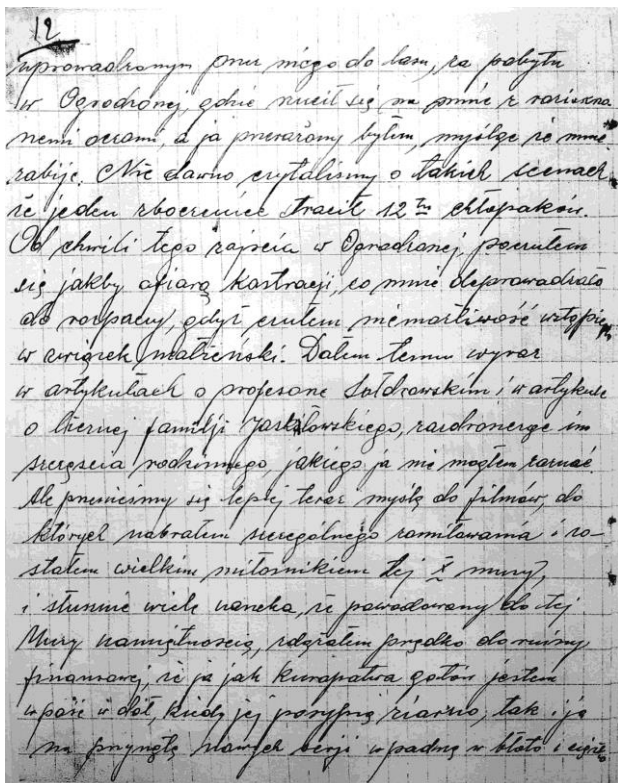 12
uprowadzonym przez niego do lasu, za pobytu
w Ogrodzonej, gdzie rzucił się na mnie z rozisknа
nemi oczami, a ja przerażony byłem, myśląc że mnie
zabije. Nie dawno czytaliśmy o takich scenach
że jeden zboczeniec stracił 12tu chłopaków.
Od chwili tego zajścia w Ogrodzonej, poczułem
się jakby ofiarą kastracji, co mnie doprowadzało
do rozpaczy, gdyż czułem niemożliwość wstąpie
w związek małżeński. Dałem temu wyraz
w artykułach o profesorze Sołdrowskim i w artykule
o licznej familji Jaskólowskiego, zazdroszcząc im
szczęścia rodzinnego, jakiego ja nie mogłem zaznać.
Ale przenieśmy się lepiej teraz myślą do filmów, do
których nabrałem szczególnego zamiłowania i zo-
stałem wielkim miłośnikiem tej X muzy,
i słusznie wiele, że powodowany do tej
Muzy namiętnością, zdążałem prędko do ruiny
finansowej, że ja jak kuropatwa gotów jestem
wpaść w dół, kiedy jej posypną ziarno, tak i ja
na przynętę nowych wpadnę w błoto i